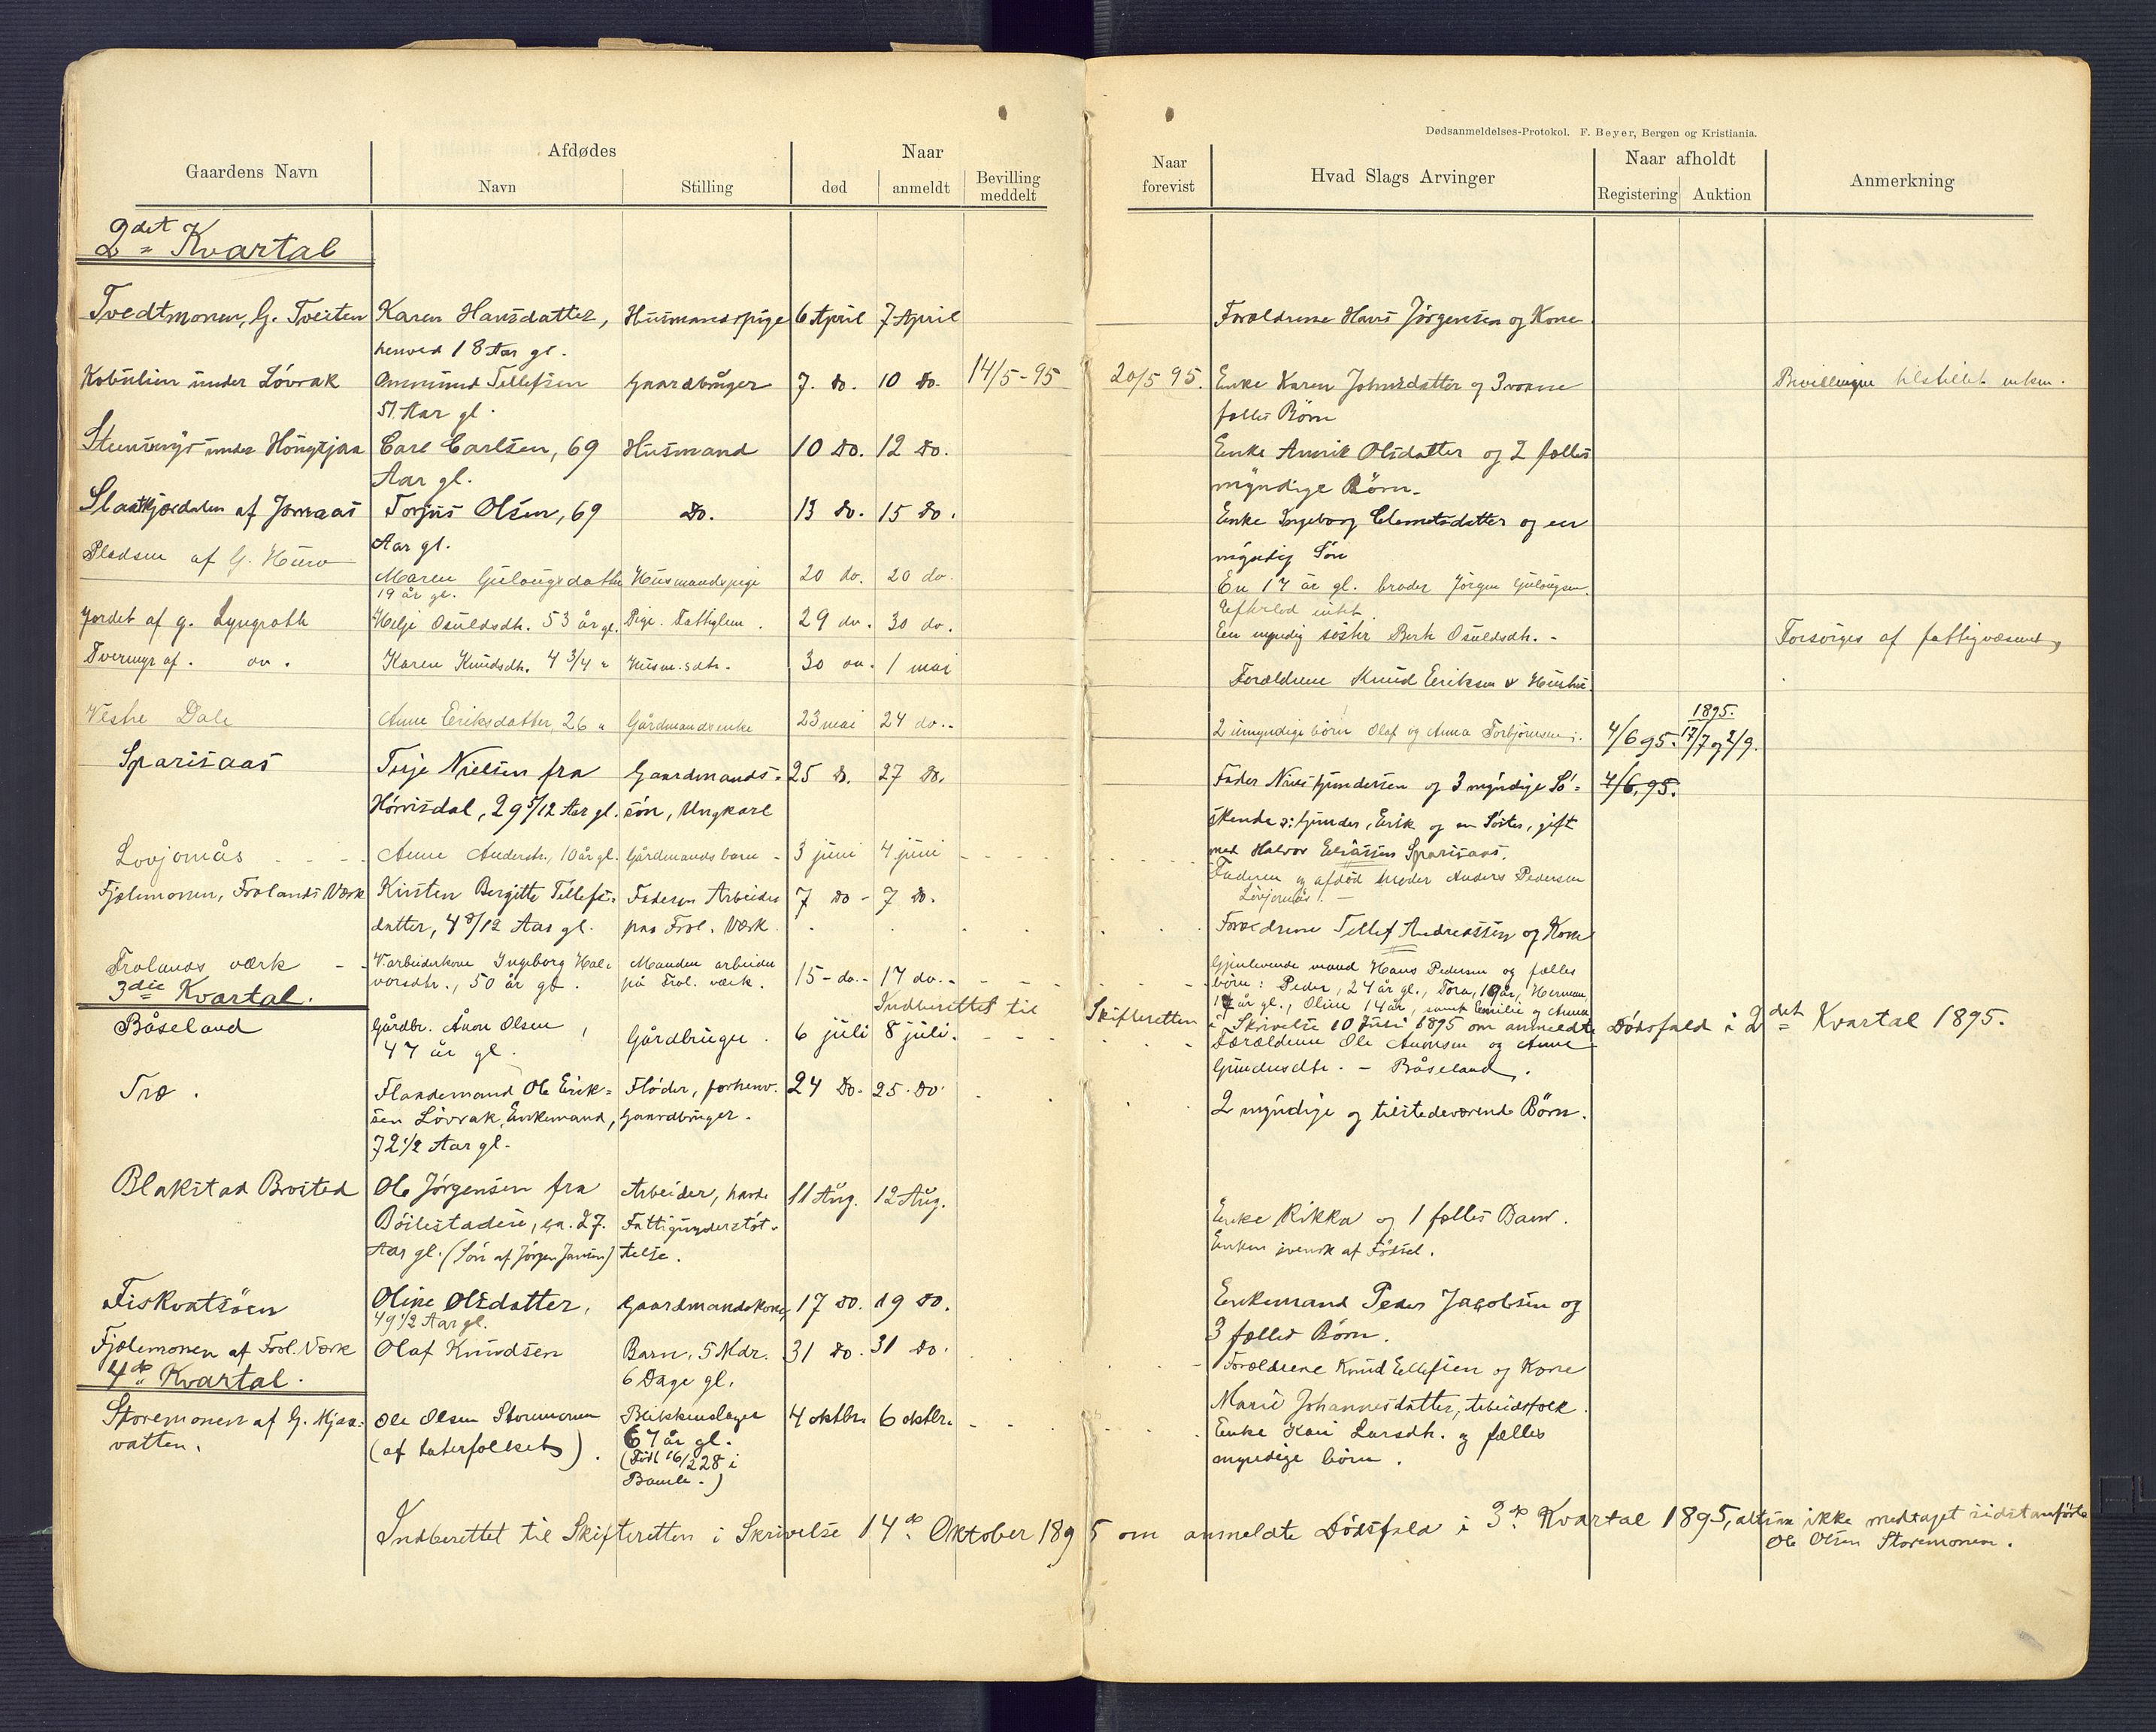 Dødsanmeldelses-Protokol. F. Beyer, Bergen og Kristiania.
Gaardens Navn
Afdødes
Navn
Stilling
Naar
død
anmeldt
Bevilling meddelt
Naar forevist
Hvad Slags Arvinger
Naar afholdt
Registering
Auktion
Anmerkning
2det Kvartal
Tvedtmonen, G. Tveiten Karen Hansdatter, Husmandspige 6 April 7 April Forældrene Hans Jörgensen og Kone
henved 18 Aar gl.
under Lövrak Ommund Tellefsen Gaardbruger 7. do. 10 do. 14/5-95 20/5 95. Enke Karen Johnsdatter og 3 voxne Bevillingen tilstillet enken.
51 Aar gl. fælles Börn
under Carl Carlsen, 69 Husmand 10 do. 12 do. Enke Annik Olsdatter og 2 fælles
Aar gl. myndige Börn.
af Jomaas Torjus Olsen, 69 do. 13 do. 15 do. Enke Ingeborg Clemetsdatter og en
Aar gl. myndig Sön
Pladsen af G. Maren Gulaugsdatter Husmandspige 20 do. 20 do. En 17 år gl. broder Jörgen Gulaugsen.
19 år gl. Efterlod intet.
Jordet af g. Lyngroth Helje Osuldsdtr. 53 år gl. Pige. Fattiglem. 29 do. 30 do. En myndig söster Berte Osuldsdtr. - Forsörges af fattigvæsenet
af. do. Karen Knudsdtr. 4 3/4 " Husm.sdtr. 30 do. 1 mai Forældrene Knud Eriksen & Hustru.
Vestre Dale Anne Eriksdatter, 26 " Gårdmandsenke 23 mai 24 do. 2 umyndige börn Olaf og Anna Torbjörnsen. 4/6 95. 1895. 17/7 og 2/9.
Sparsaas Terje Nielsen fra Gaardmands- 25 do. 27 do. Fader Niels Gundersen og 3 myndige Sö- 4/6. 95.
29 5/12 Aar gl. sön, Ungkarl skende o: Gunder, Erik og en Söster, gift
med Halvor Eliassen Sparsaas.
Lovjomås Anne Andersdtr., 10 år gl. Gårdmandsbarn 3 juni 4 juni Faderen og afdöd moder Anders Pedersen
Lövjomås. -
Fjælemonen, Frolands Værk Kirsten Bergitte Tellefs- Faderen Arbeider 7 do - 7 do.
datter, 4 8/12 Aar gl. paa Frol. Værk. Forældrene Tellef Andreassen og Kone
Frolands værk Varbeiderkone Ingeborg Hal- Manden arbeider 15 - do. 17 do. Gjenlevende mand Hans Pedersen og fælles
vorsdtr., 50 år gl. på Frol. værk. börn: Peder, 24 år gl., Tora, 19 år, Herman,
17 år gl., Oline 14 år, samt Emilie og Anna
3die Kvartal.
Indberettet til Skifteretten i Skrivelse 10 Juli 1895 om anmeldte Dödsfald i 2det Kvartal 1895.
Båseland Gårdbr. Ånon Olsen, Gårdbruger. 6 juli 8 juli. Forældrene Ole Aanonsen og Anne
47 år gl. Gundersdtr. - Båseland.
Træ. Flandemand Ole Erik- Flöder, forhenv. 24 do. 25 do. 2 myndige og tilstedeværende Börn.
sen Lövrak, Enkemand, Gaardbruger.
72 1/2 Aar gl.
Blakstad Brosted Ole Jörgensen fra Arbeider, havde 11 Aug. 12 Aug. Enke Rikka og 1 fælles Barn.
Böilestadeie, ca. 27. Fattigunderstöt- Enken svensk af Födsel.
Aar gl. (Sön af Jörgen Jansen) telse.
Fiskvatsöen Oline Olsdatter, Gaardmandskone, 17 do. 19 do. Enkemand Peder Jacobsen og
49 1/2 Aar gl. 3 fælles Börn.
Fjælemonen af Frol. Værk Olaf Knudsen Barn, 5 Mdr. 31 do. 31 do. Forældrene Knud Ellefsen og Kone
6 Dage gl. Marie Johannesdatter, Arbeidsfolk.
4de Kvartal.
Storemonen af G. Mjaa- Ole Olsen Storemonen Blikkenslager 4 oktbr. 6 oktbr. Enke Kari Larsdtr. og fælles
vatten. (af taterfolket). 67 år gl. myndige börn.
(Föd 16/2 28 i
Bamle.)
Indberettet til Skifteretten i Skrivelse 14de Oktober 1895 om anmeldte Dödsfald i 3de Kvartal 1895, altsaa ikke medtaget sidstanförte
Ole Olsen Storemonen.